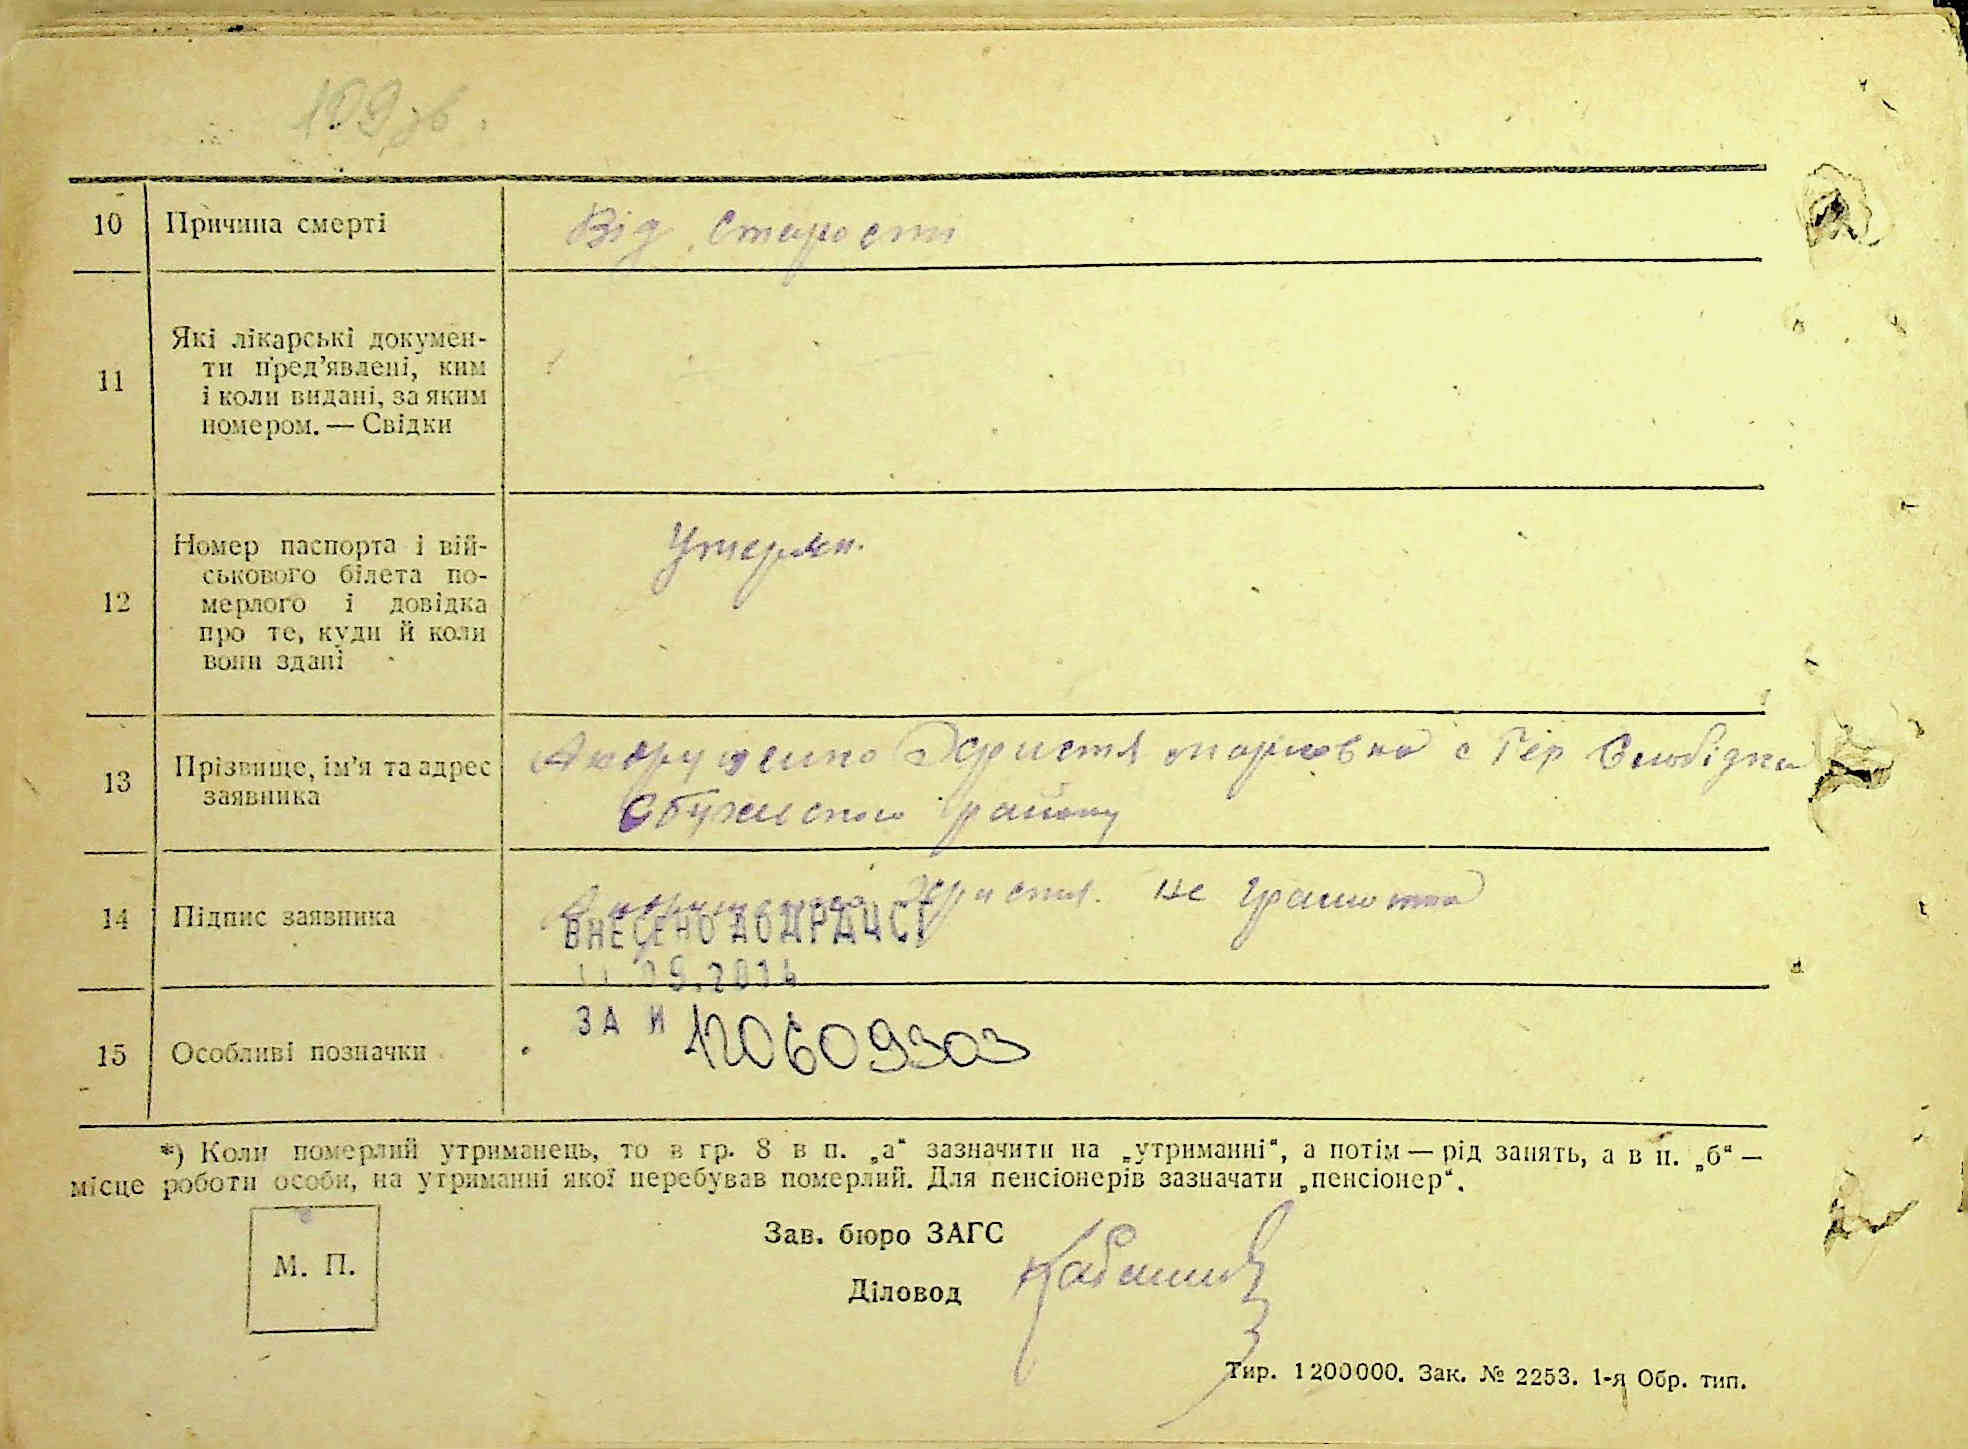 109 зв.
10 Причина смерті Від старости
11 Які лікарські докумен-
ти пред'явлені, ким
і коли видані, за яким
номером. — Свідки
12 Номер паспорта і вій-
ськового білета по-
мерлого і довідка
про те, куди й коли
вони здані
Утерян.
13 Прізвище, ім'я та адрес
заявника
Христя с Гер Слобідка
району
14 Підпис заявника
Христя. не грамотна
ВНЕСЕНО ДО ДРАЦСГ
ЗА № 120609303
15 Особливі позначки
*) Коли померлий утриманець, то в гр. 8 в п. „а“ зазначити на „утриманні“, а потім — рід занять, а в п. „б“ —
місце роботи особи, на утриманні якої перебував померлий. Для пенсіонерів зазначати „пенсіонер“.
М. П.
Зав. бюро ЗАГС
Діловод
Тир. 1200000. Зак. № 2253. 1-я Обр. тип.